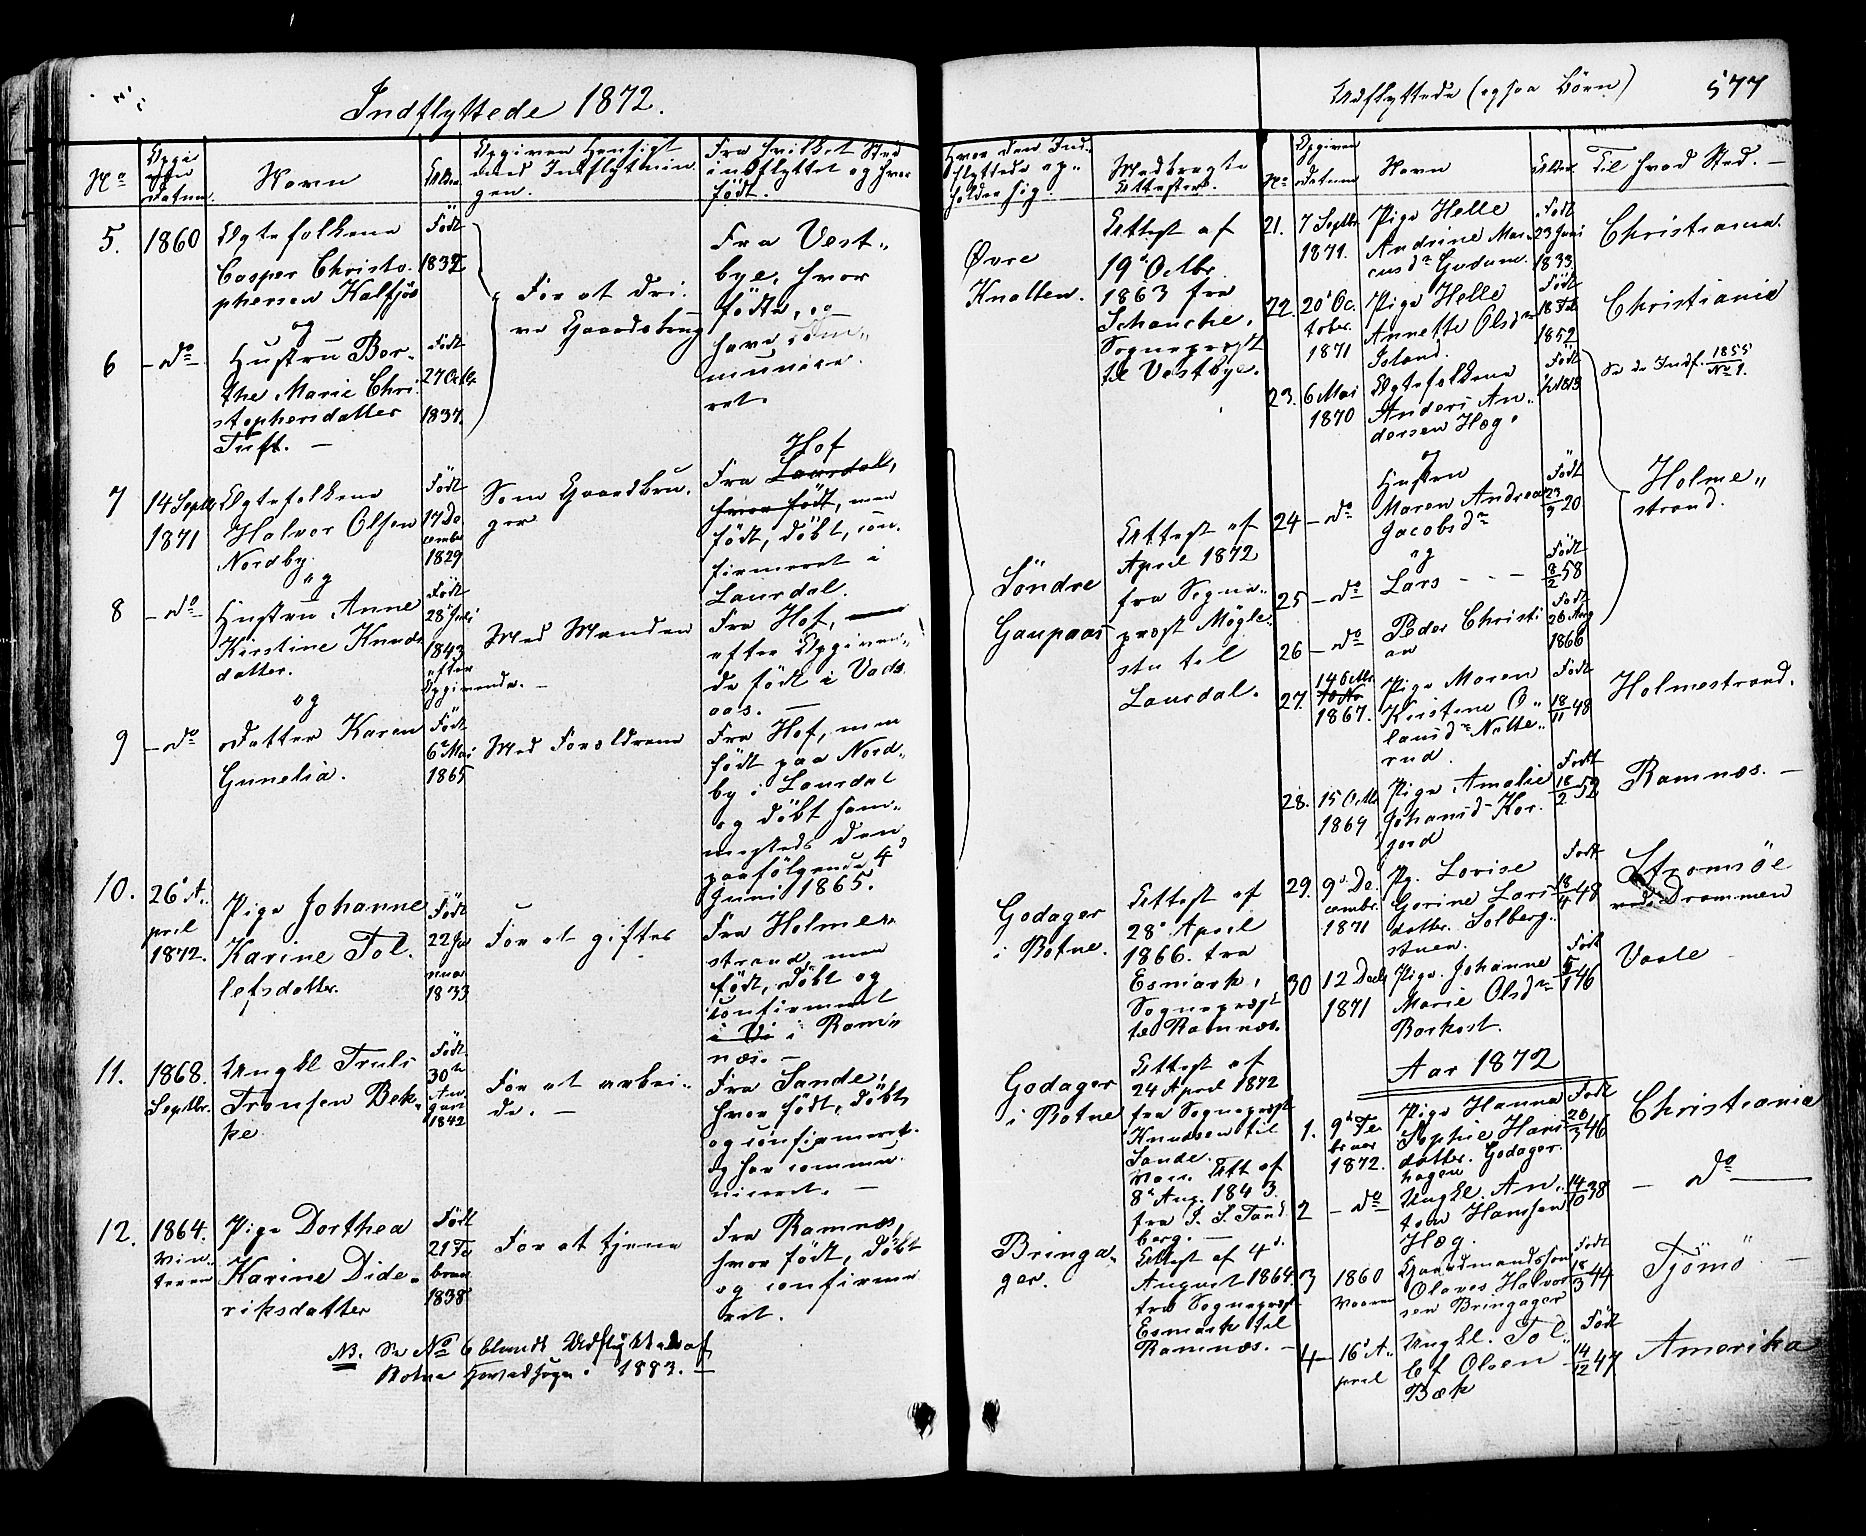 Indflyttede 1872.
No
Opgiven Datum.
Navn
Alder.
Opgiven Hensigt
med Indflytnin
gen.
Fra hvilket Sted
indflyttet og hvor
født.
Hvor den Ind-
flyttede op-
holder sig.
Medbragte
Attester.
5. 1860
Ægtefolkene
Casper Christo-
phersen Kalfjøs
og
Født
1832
For at dri-
ve Gaardsbrug
Fra Vest-
bye, hvor
fødte, og
have com-
munice-
ret.
Øvre
Knatten.
Attest af
19d Octbr.
1863 fra
Schancke,
Sogneprest
til Vestbye.
6 - do -
Hustru Ber-
the Marie Chri-
stophersdatter
Tuft. -
Født
27 Octbr
1837.
7 14 Septbr
1871
Ægtefolkene
Halvor Olsen
Nordby.
og
Født
17 De
cembr
1829
Som Gaardbru-
ger
Hof
Fra Laurdal,
hvor født, men
født, døbt, con-
firmeret i
Laurdal.
Søndre
Gaupaas
Attest af
April 1872
fra Sogne-
prest Mögle-
stu til
Laurdal.
8 - do -
Hustru Anne
Kirstine Knuds
datter.
og
Født
28 Juli
1843
efter
Opgivende. -
Med Manden
Fra Hof,
efter Opgiven-
de født i Vads
aas. -
9 - do
Datter Karen
Gunelia.
Født
6 Mai
1865
Med Forældrene
Fra Hof, men
født paa Nord-
by i Laurdal
og døbt sam-
mesteds den
paafølgende 4d
Juni 1865.
10. 26d A-
pril
1872.
Pige Johanne
Karine Tol-
lefsdatter.
Født
22 Ja
nuar
1833
For at giftes
Fra Holme-
strand, men
født, døbt og
confirmeret
i Vi i Ram-
næs. -
Godager
i Botne.
Attest af
28d April
1866 fra
Esmark,
Sogneprest
til Ramnæs.
11. 1868.
Septbr.
Ungkl Truls
Tronsen Bek-
ke
Født
30te
Au-
gust
1842
For at arbei-
de. -
Fra Sande,
hvor født, døbt
og confirmeret.
og har commu-
niceret. -
Godager
i Botne
Attest af
24 April 1872
fra Sogneprest
Knudsen til
Sande.
Vacc. Att af
8d Aug. 1843.
fra J. S. Tand
berg. -
12. 1864.
Vin-
teren
Pige Dorthea
Karine Dide-
riksdatter
Født
21 Fe
bruar
1838
For at tjene
Fra Ramnæs,
hvor født, døbt
og confirme
ret.
Bringa-
ger.
Attest af 4d
August 1864
fra Sogneprest
Esmark til
Ramnæs. -
NB. Se No 6 blandt Udflyttede af
Botne Hovedsogn. 1883. -
Udflyttede (ogsaa Børn) 577
No
Opgiven
Datum
Navn
Alder.
Til hvad Sted. -
21. 7 Septbr
1871.
Pige Helle
Andrine Mar-
cusdr Gudum.
Født
23 Juni
1833
Christiania.
22. 20d Oc
tober.
1871
Pige Helle
Annette Olsdr
Island.
Født
18 Feb
1852
Christiania
23. 6 Mai
1870
Ægtefolkene
Anders An-
dersen Høg.
og
Født
1818
Se de Indf. 1855 No 1.
Holme-
strand.
24 - do
Hustru
Maren Andrea
Jacobsdr
og
Født
23/9 20
25 - do
Lars - - -
Født
8/2 58
26 - do
Peder Christi
an
Født
26 Aug
1866
27. 14 Octbr
1867.
Pige Maren
Kirstine O-
lausdr Nøtte-
rud.
Født
18/11 48
Holmestrand.
28. 15 Octbr
1869
Pige Amalie
Johansdr Kor-
gerd
Født
18/2 52
Ramnæs. -
29. 9d De-
cembr.
1871
Pg. Lovise
Gerine Lars
datter. Solberg-
stuen.
Født
18/4 48
Strømsøe
ved Drammen
30 12 Decbr
1871
Pige. Johanne
Marie Olsdr
Borkost.
Født
5/1 46
Vaale
Aar 1872
1. 9d Fe
bruar
1872.
Pige Hanna
Sophie Hans
datter. Godager
hagen
Født
20/3 46
Christiania
2 - do
Ungkl. An-
ton Hansen
Høg.
14/10 38
- do -
3 1860
Vaaren
Gaardmandssøn
Olaves Halvor
sen Bringager
Født
18/3 44
Tjömö -
4 - 16d A-
pril
Ungkl. Tol-
lef Olsen
Bæk
Født
14/12 47
Amerika